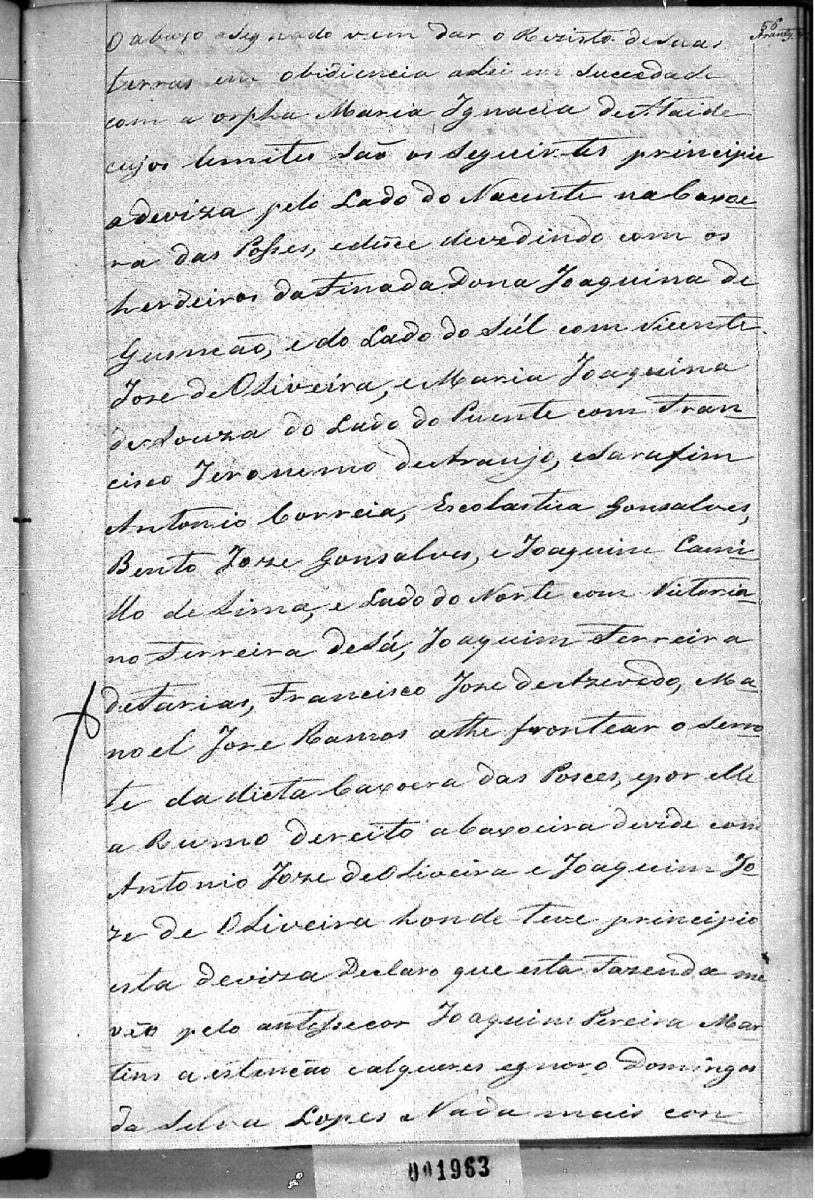 56
O abaxo asignado vem dar o Rezisto de suas
terras em obidiencia a Lei em Sucedade
com a orpha Maria Ignacia de Ataide
cujos lemites são os seguirtes principie
a deviza pelo Lado do Nacente na Caxoe-
ra das Posses, e dahi devedindo com os
herdeiros da Finada Dona Joaquina de
Gusmão, e do Lado do Súl com Vicente
Jose de Oliveira, e Maria Joaquina
de Souza do Lado do Puente com Fran-
cisco Jeronemo de Araujo, e Sarafim
Antonio Correia, Escolastica Gonsalves,
Bento Joze Gonsalves, e Joaquim Cami-
llo de Lima, e Lado do Norte com Victoria-
no Ferreira de Sá, Joaquim Ferreira
de Farias, Francisco Joze de Azevedo, Ma-
noel Jore Ramos athe frontear o serro
te da dicta Caxoera das Posces, e por elle
a Rumo dereito a baxoeira devide com
Antonio Joze de Oliveira e Joaquim Jo-
ze de Oliveira honde teve principio
esta deviza Declaro que esta Fazenda me
veio pelo antessecor Joaquim Pereira Mar
tins a estenção e alqueres egnoro Domingos
da Selva Lopes e Nada mais con-
001963